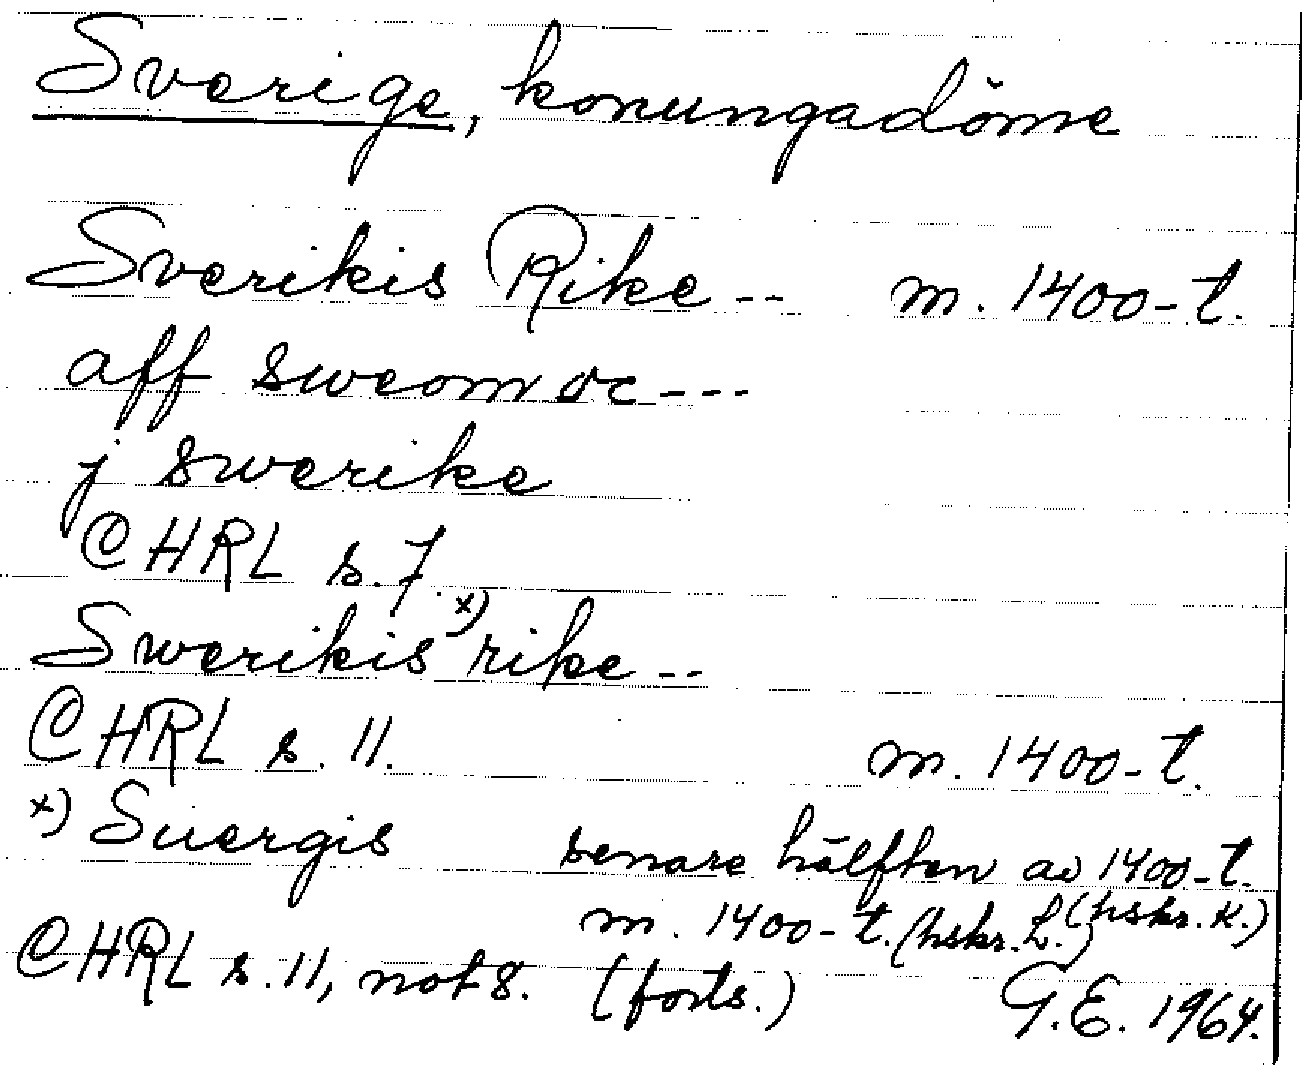 Sverige, konungadöme
Sverikis Rike -- m. 1400-t.
aff sweom oc ---
j swerike
CHRL s. 7.
Swerikis x) rike --
CHRL s. 11. m. 1400-t.
x) Suergis senare hälften av 1400-t. (hskr. K.)
m. 1400-t. (hskr. L.)
CHRL s. 11, not 8. (forts.) G.E. 1964.